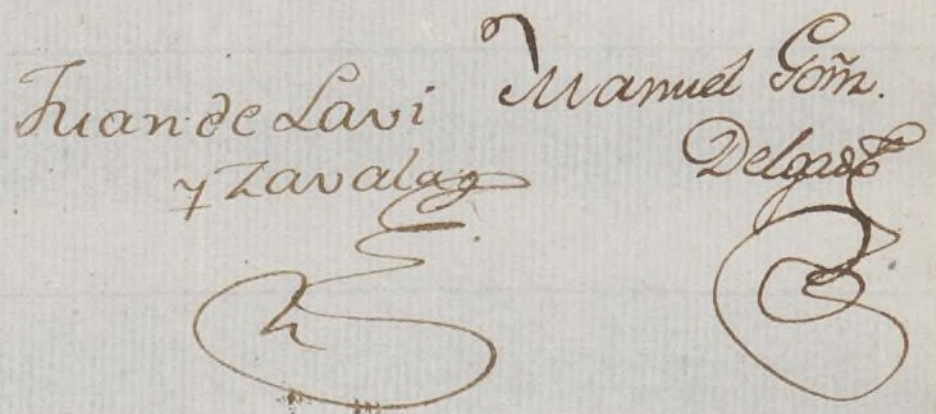 Juan de Lavi
y Zavala
Manuel Goñz.
Delgado